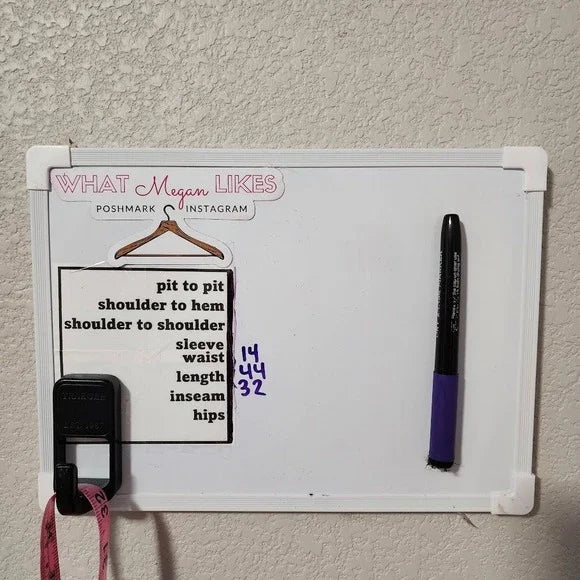 WHAT Megan LIKES
POSHMARK INSTAGRAM
pit to pit
shoulder to hem
shoulder to shoulder
sleeve
waist 14
length 44
inseam 32
hips